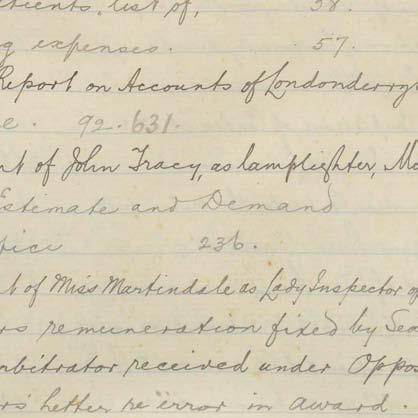 tients, list of, 58.
g expenses. 57.
Report on Accounts of Londonderry
e. 92. 631.
nt of John Tracy, as lamplighter, Mo
Estimate and Demand
fice 236.
t of Miss Martindale as Lady Inspector of
rs remuneration fixed by Sea
rbitrator received under Oppos
rs letter re error in award.